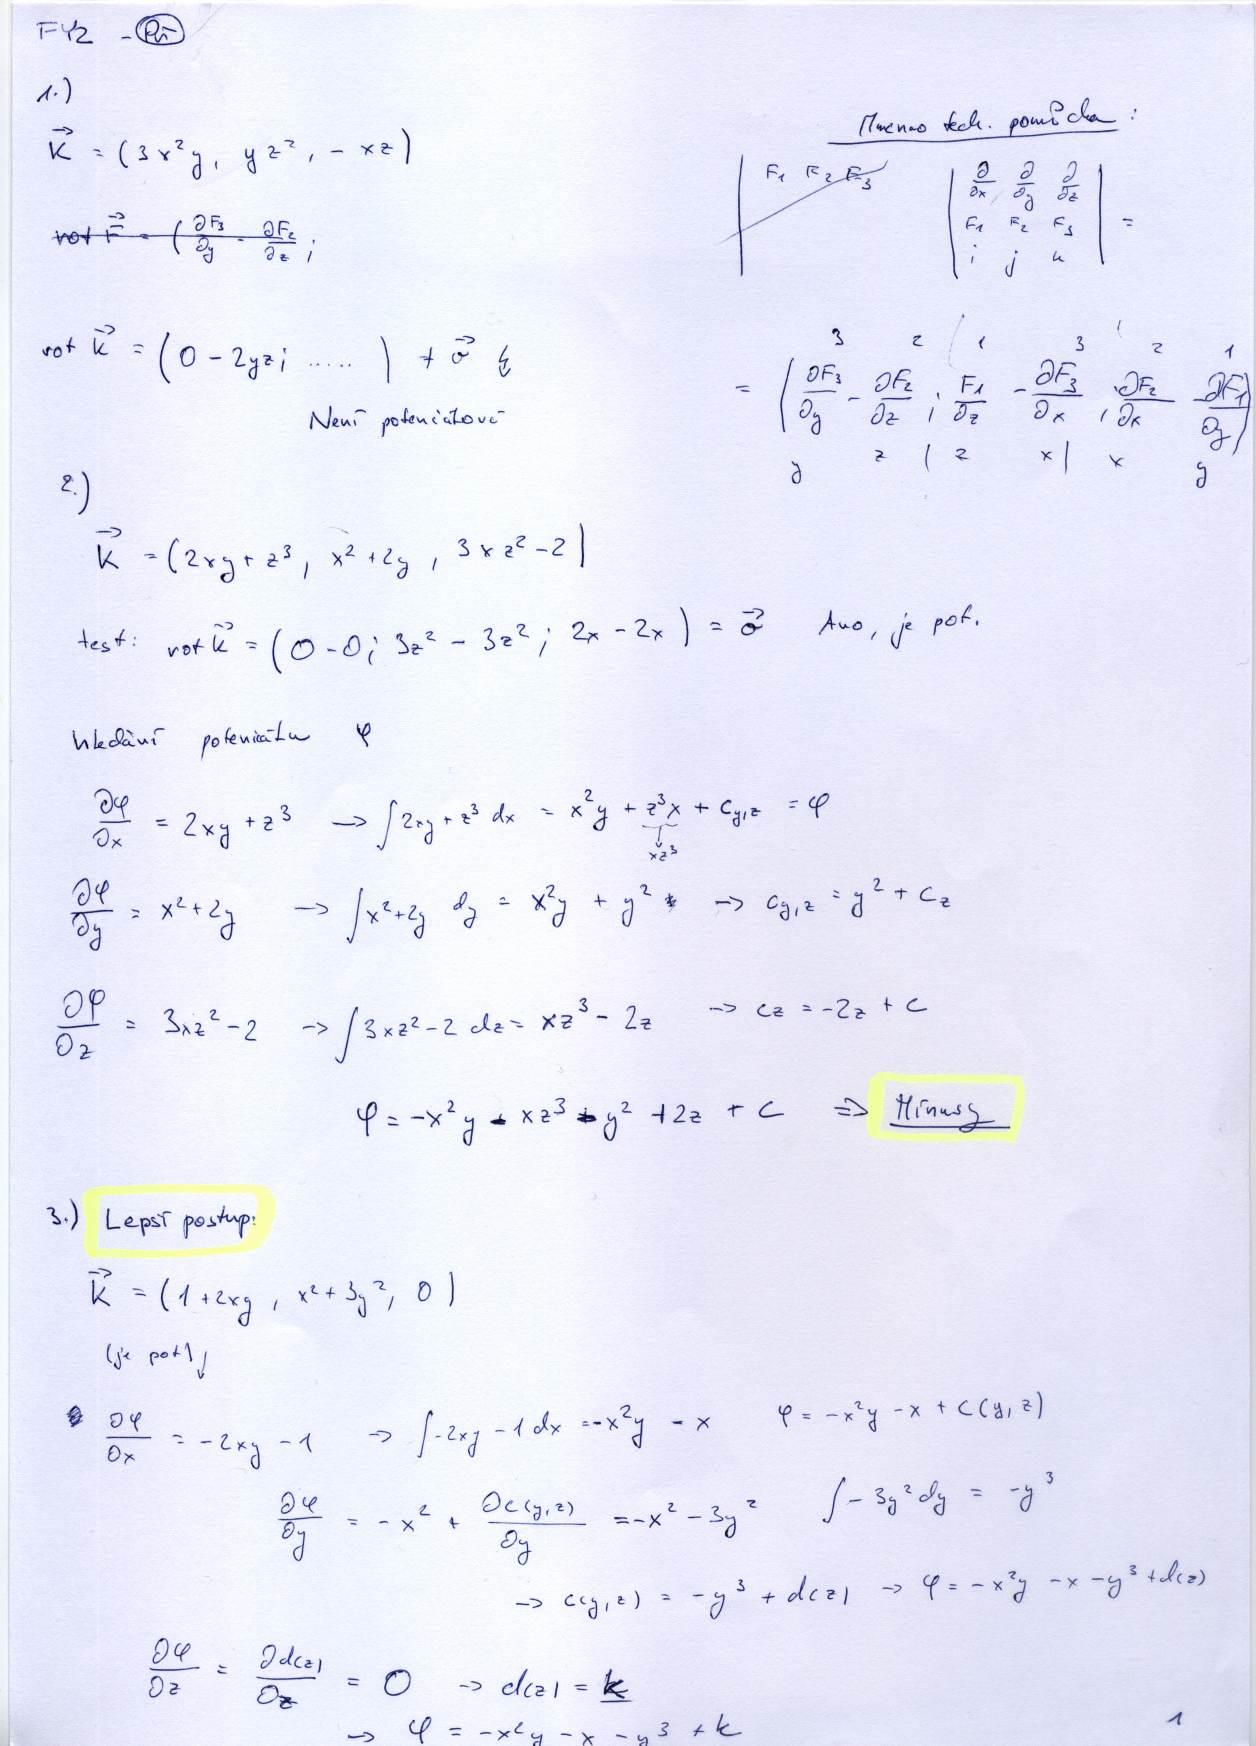 FY2 - Př
1.)
K⃗ = (3x²y, yz², -xz)
rot F⃗ = (∂F₃/∂y - ∂F₂/∂z ;
rot K⃗ = (0 - 2yz; .....) ≠ o⃗ ↯
Není potenciálové
Mnemo tech. pomůcka :
| F₁ F₂ F₃
| ∂/∂x ∂/∂y ∂/∂z |
| F₁ F₂ F₃ | =
| i j k |
3 2 | 1 3 2 1
= (∂F₃/∂y - ∂F₂/∂z ; F₁/∂z - ∂F₃/∂x , ∂F₂/∂x - ∂F₁/∂y)
y z | z x | x y
2.)
K⃗ = (2xy + z³, x² + 2y, 3xz² - 2)
test: rot K⃗ = (0 - 0; 3z² - 3z²; 2x - 2x) = o⃗ Ano, je pot.
hledání potenciálu φ
∂φ/∂x = 2xy + z³ → ∫2xy + z³ dx = x²y + z³x + c_{y,z} = φ
xz³
∂φ/∂y = x² + 2y → ∫x² + 2y dy = x²y + y² → c_{y,z} = y² + c_z
∂φ/∂z = 3xz² - 2 → ∫3xz² - 2 dz = xz³ - 2z → c_z = -2z + c
φ = -x²y - xz³ - y² + 2z + c ⇒ Mínusy
3.) Lepší postup:
K⃗ = (1 + 2xy, x² + 3y², 0)
(je pot) ↓
∂φ/∂x = -2xy - 1 → ∫-2xy - 1 dx = -x²y - x φ = -x²y - x + c(y, z)
∂φ/∂y = -x² + ∂c(y,z)/∂y = -x² - 3y² ∫-3y² dy = -y³
→ c(y,z) = -y³ + d(z) → φ = -x²y - x - y³ + d(z)
∂φ/∂z = ∂d(z)/∂z = 0 → d(z) = k
→ φ = -x²y - x - y³ + k
1